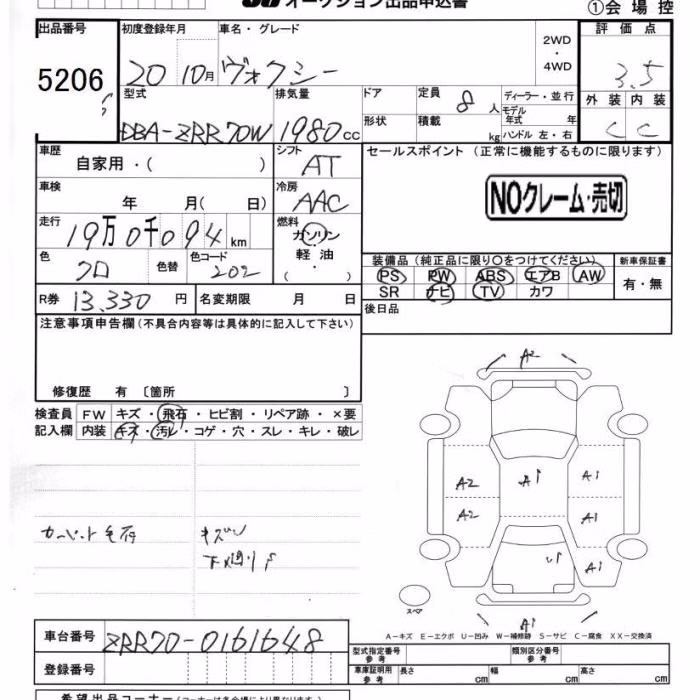 オークション出品申込書
①会場控
出品番号
初度登録年月
車名・グレード
2WD
・
4WD
評価点
5206
20
10月
ヴォクシー
3.5
型式
排気量
ドア
定員
8人
ディーラー・並行
外装
内装
モデル年式
年
DBA-ZRR70W
1980cc
形状
積載
kg
ハンドル 左・右
C
C
車歴
自家用・(
)
シフト
AT
セールスポイント (正常に機能するものに限ります)
NOクレーム・売切
車検
年
月(
日)
冷房
AAC
走行
19万0千094km
燃料
ガソリン
・
軽油
・
(
)
色
クロ
色替
色コード
202
装備品 (純正品に限り〇をつけてください)
新車保証書
PS
PW
ABS
エアB
AW
有・無
SR
ナビ
TV
カワ
R券
13,330円
名変期限
月
日
後日品
注意事項申告欄(不具合内容等は具体的に記入して下さい)
修復歴
有
〔箇所
〕
検査員
記入欄
FW
キズ・飛石・ヒビ割・リペア跡・×要
内装
キズ・汚レ・コゲ・穴・スレ・キレ・破レ
A2
A2
A1
A1
A2
A1
A1
スペア
A1
A-キズ E-エクボ U-凹み W-補修跡 S-サビ C-腐食 XX-交換済
車台番号
ZRR70-0161648
型式指定番号
参考
類別区分番号
参考
登録番号
車庫証明用
参考
長さ
cm
幅
cm
高さ
cm
希望出品コーナー